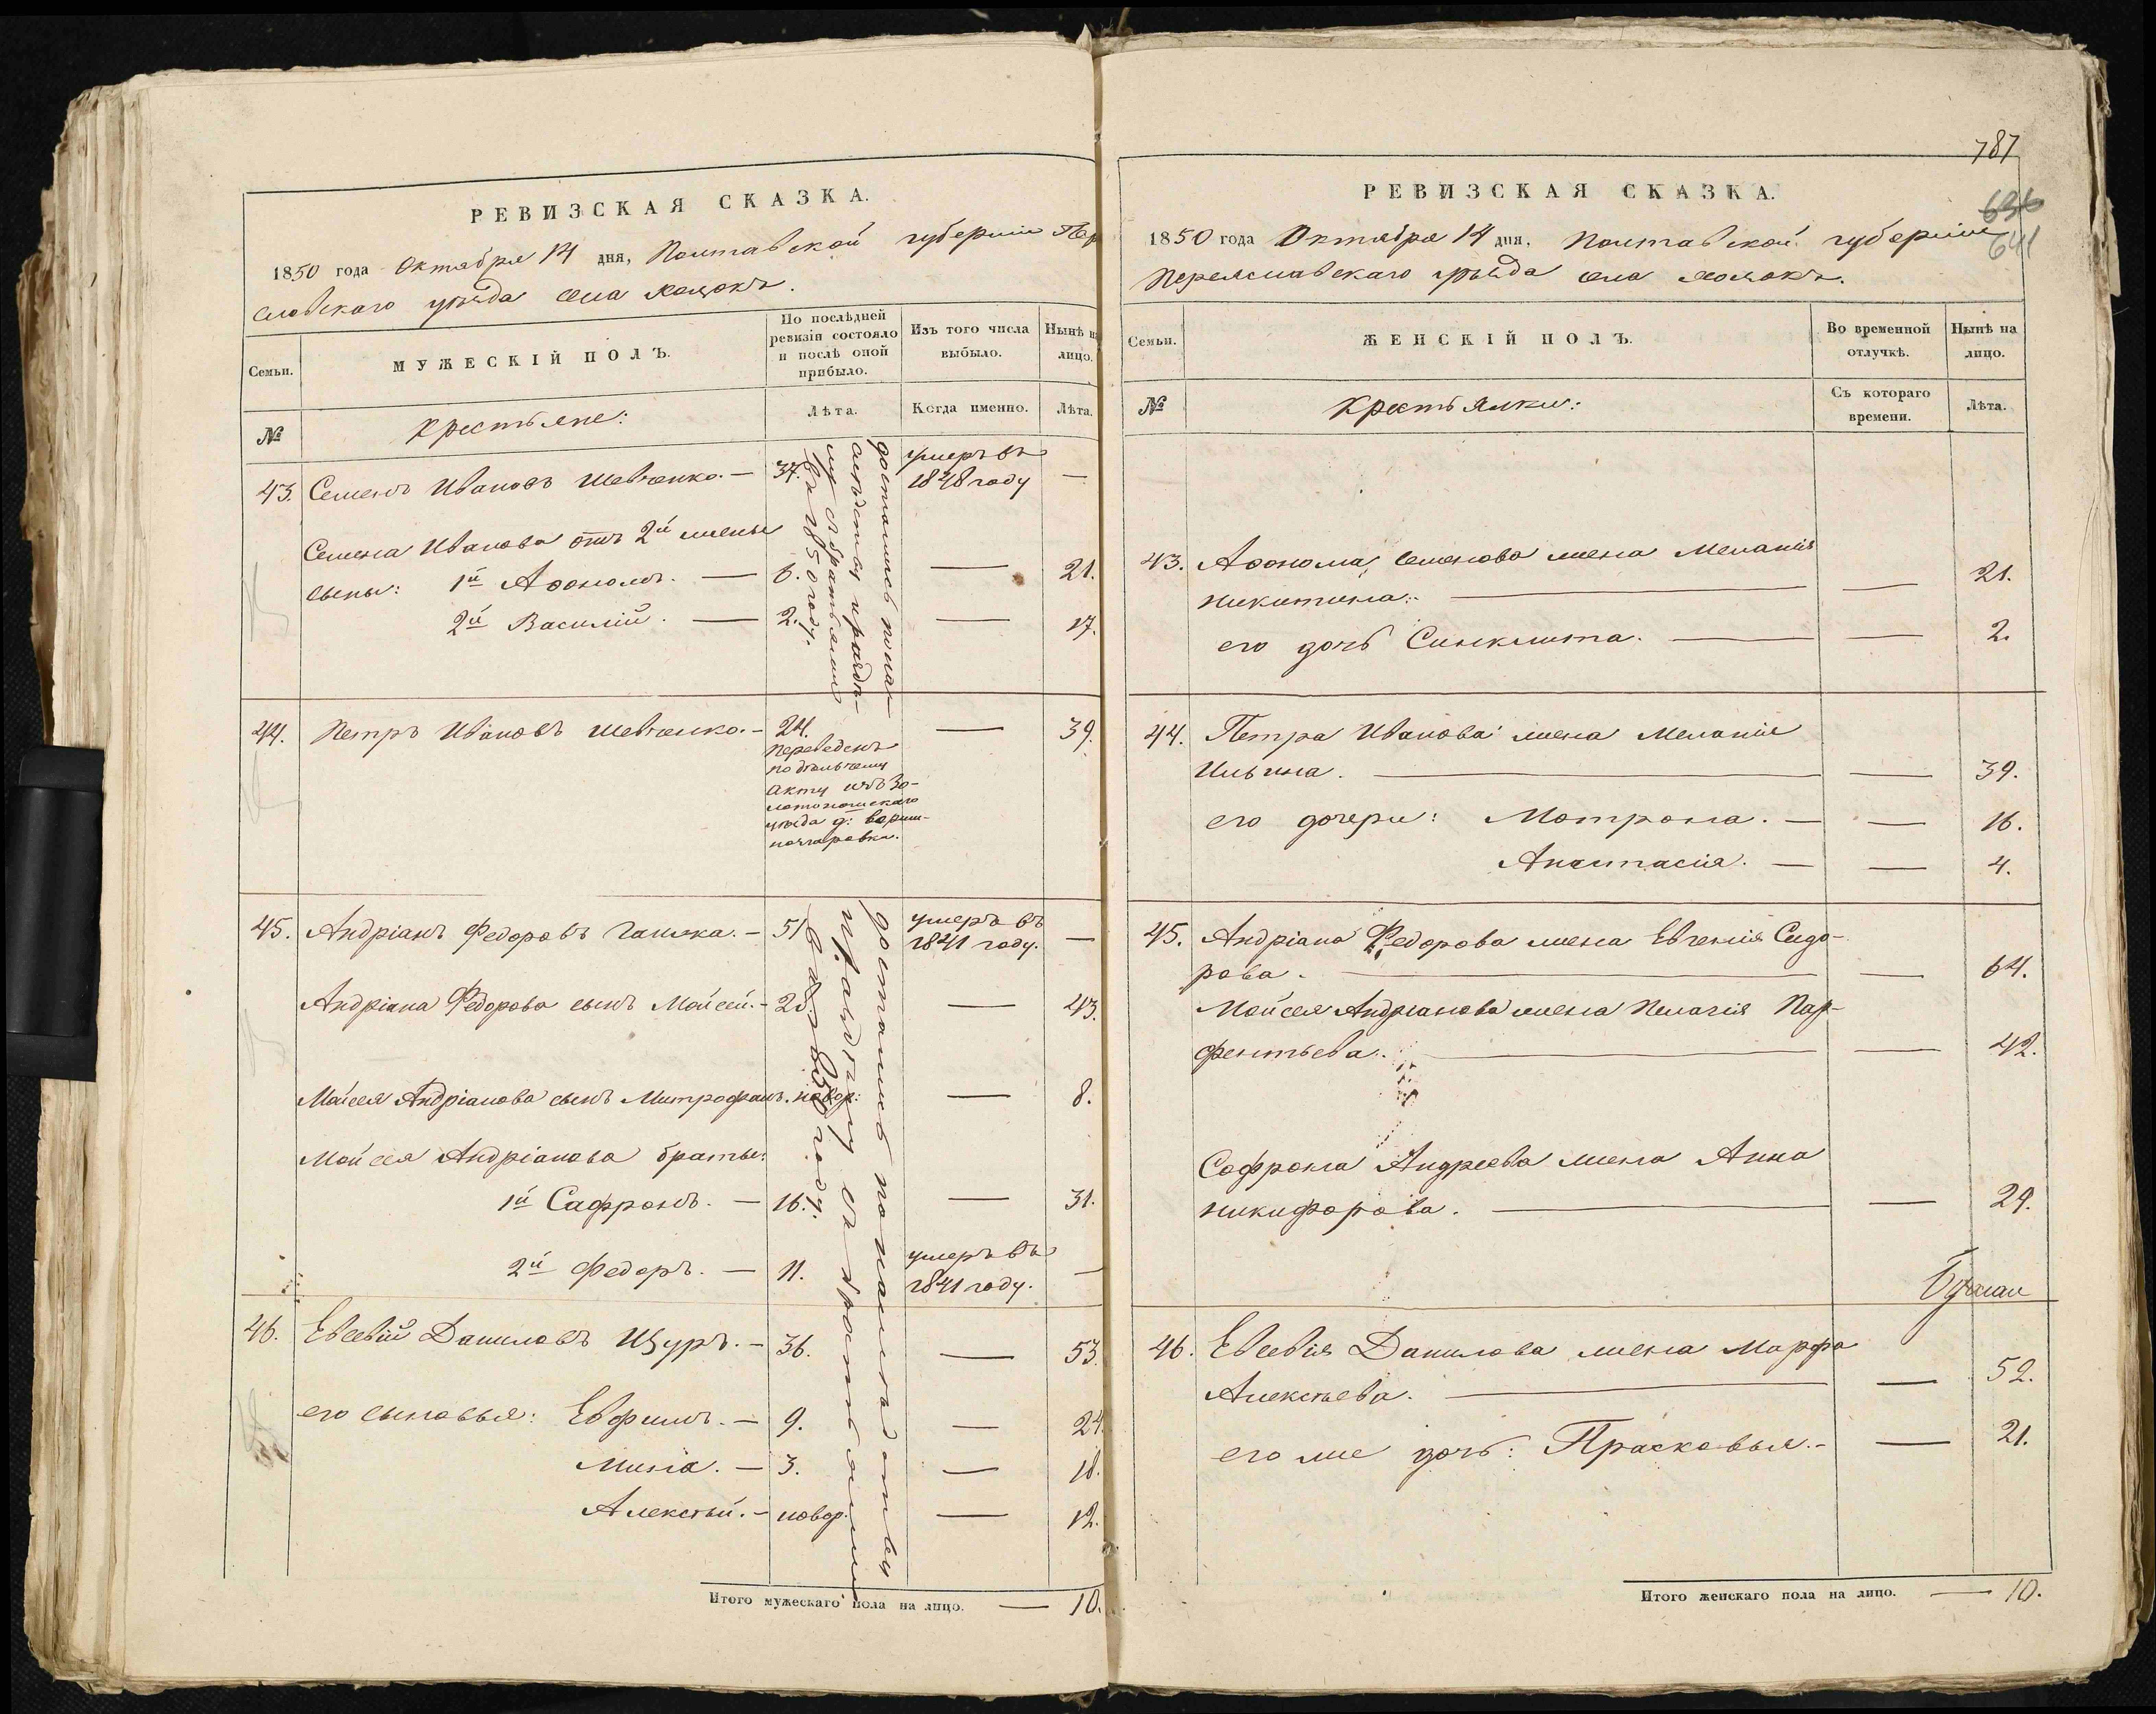 РЕВИЗСКАЯ СКАЗКА.
1850 года Октября 14 дня, Полтавской губернии Пер
славскаго уѣзда села
Семьи.
МУЖЕСКІЙ ПОЛЪ.
По послѣдней
ревизіи состояло
и послѣ оной
прибыло.
Изъ того числа
выбыло.
Нынѣ на
лицо.
№
Крестьяне:
Лѣта.
Когда именно.
Лѣта.
43. Семенъ Ивановъ Шевченко. — 34. умеръ въ
1848 году —
Семена Иванова отъ 2й жены
сыны: 1й Афономъ. — 6. — 21.
2й Василій. — 2. — 17.
достались по на-
слѣдству и раздѣ-
лу съ братьями
въ 1850 году.
44. Петръ Ивановъ Шевченко. — 24. — 39.
Переведенъ
по дѣльчему
акту изъ Зо-
лотоношскаго
уѣзда д:
45. Андріанъ Федоровъ — 51 умеръ въ
1841 году. —
Андріана Федорова сынъ Мойсей. — 28. — 43.
Мойсея Андріанова сынъ Митрофанъ. новор: — 8.
Мойсея Андріанова братья:
1й Сафронъ. — 16. — 31.
2й Федоръ. — 11. умеръ въ
1841 году. —
достались по наслѣдству
и раздѣлу съ братьями
въ 1850 году.
46. Евсевій Даниловъ Щуръ. — 36. — 53.
его сыновья: Евфимъ. — 9. — 24.
Мина. — 3. — 18.
Алексѣй. — новор. — 12.
Итого мужескаго пола на лицо. — 10.
787
636
641
РЕВИЗСКАЯ СКАЗКА.
1850 года Октября 14 дня, Полтавской губерніи
Переяславскаго уѣзда села
Семьи.
ЖЕНСКІЙ ПОЛЪ.
Во временной
отлучкѣ.
Нынѣ на
лицо.
№
Крестьянки:
Съ котораго
времени.
Лѣта.
43. Афонома Семенова жена Меланія
Никитина. — — 21.
его дочь Синклита. — — 2.
44. Петра Иванова жена Меланія
Ильина. — — 39.
его дочери: Мотрона. — — 16.
Анастасія. — — 4.
45. Андріана Федорова жена Евгенія Сидо-
рова. — — 64.
Мойсея Андріанова жена Пелагія Пар-
фентьева. — — 42.
Софрона Андреева жена Анна
Никифорова. — — 29.
46. Евсевія Данилова жена Марфа
Алексѣева. — — 52.
его же дочь: Прасковья. — — 21.
Итого женскаго пола на лицо. — 10.